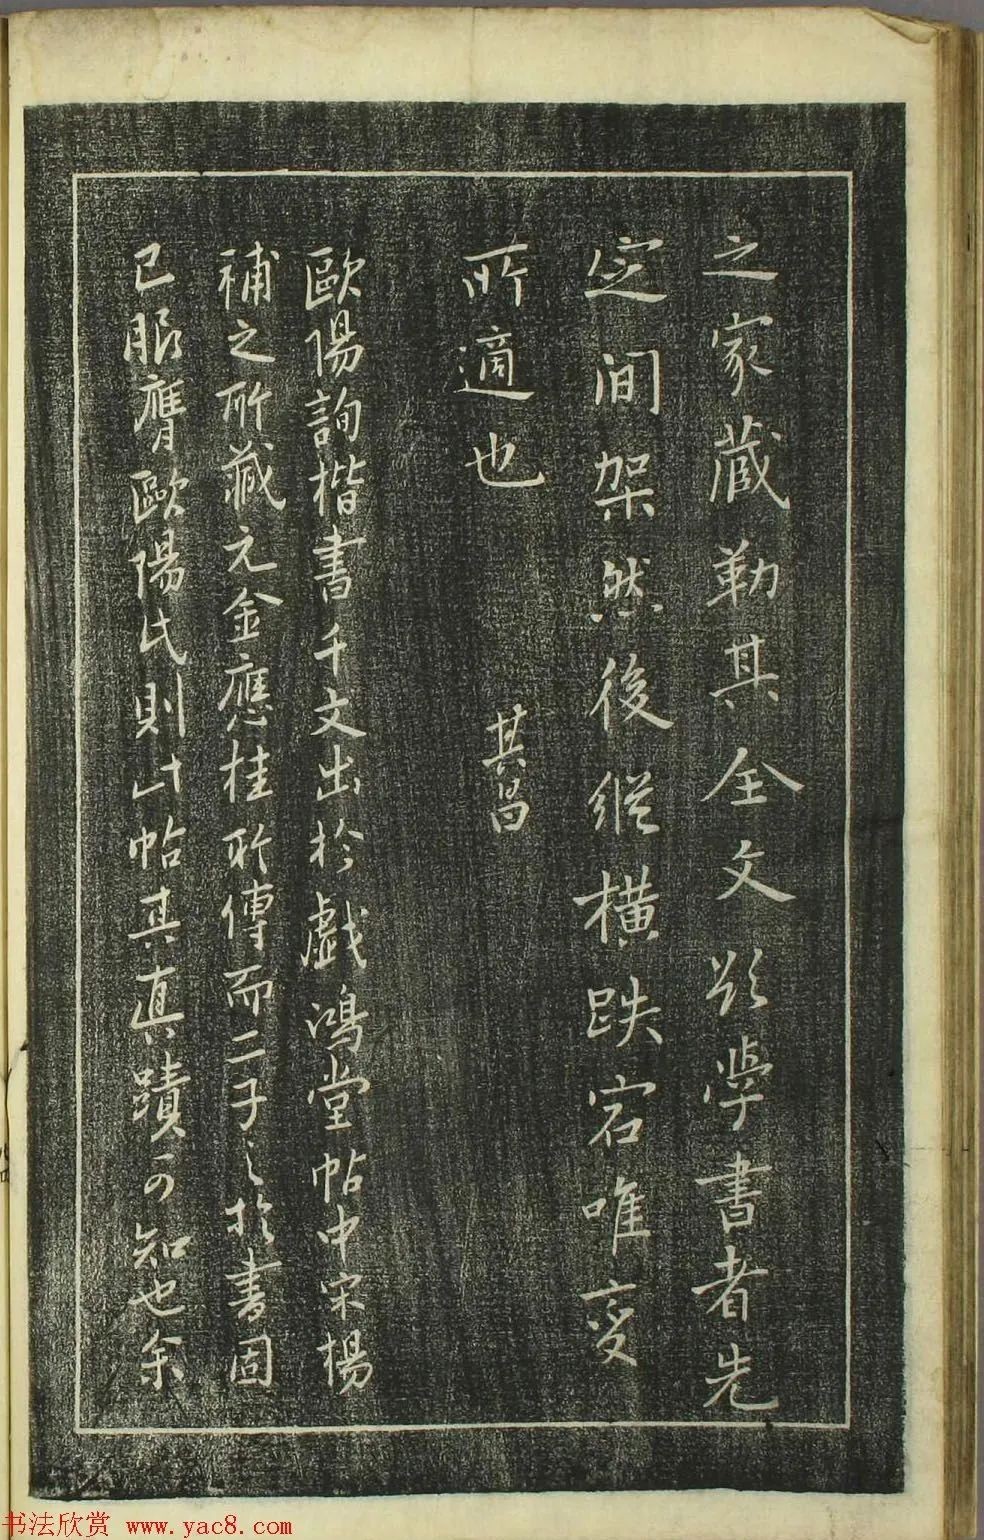 之家藏勒其全文欲學書者先
定間架然後縱橫跌宕唯變
所適也　其昌
歐陽詢楷書千文出於戲鴻堂帖中宋楊
補之所藏元金應桂所傳而二子之於書固
已服膺歐陽氏則此帖其真蹟可知也余
书法欣赏 www.yac8.com